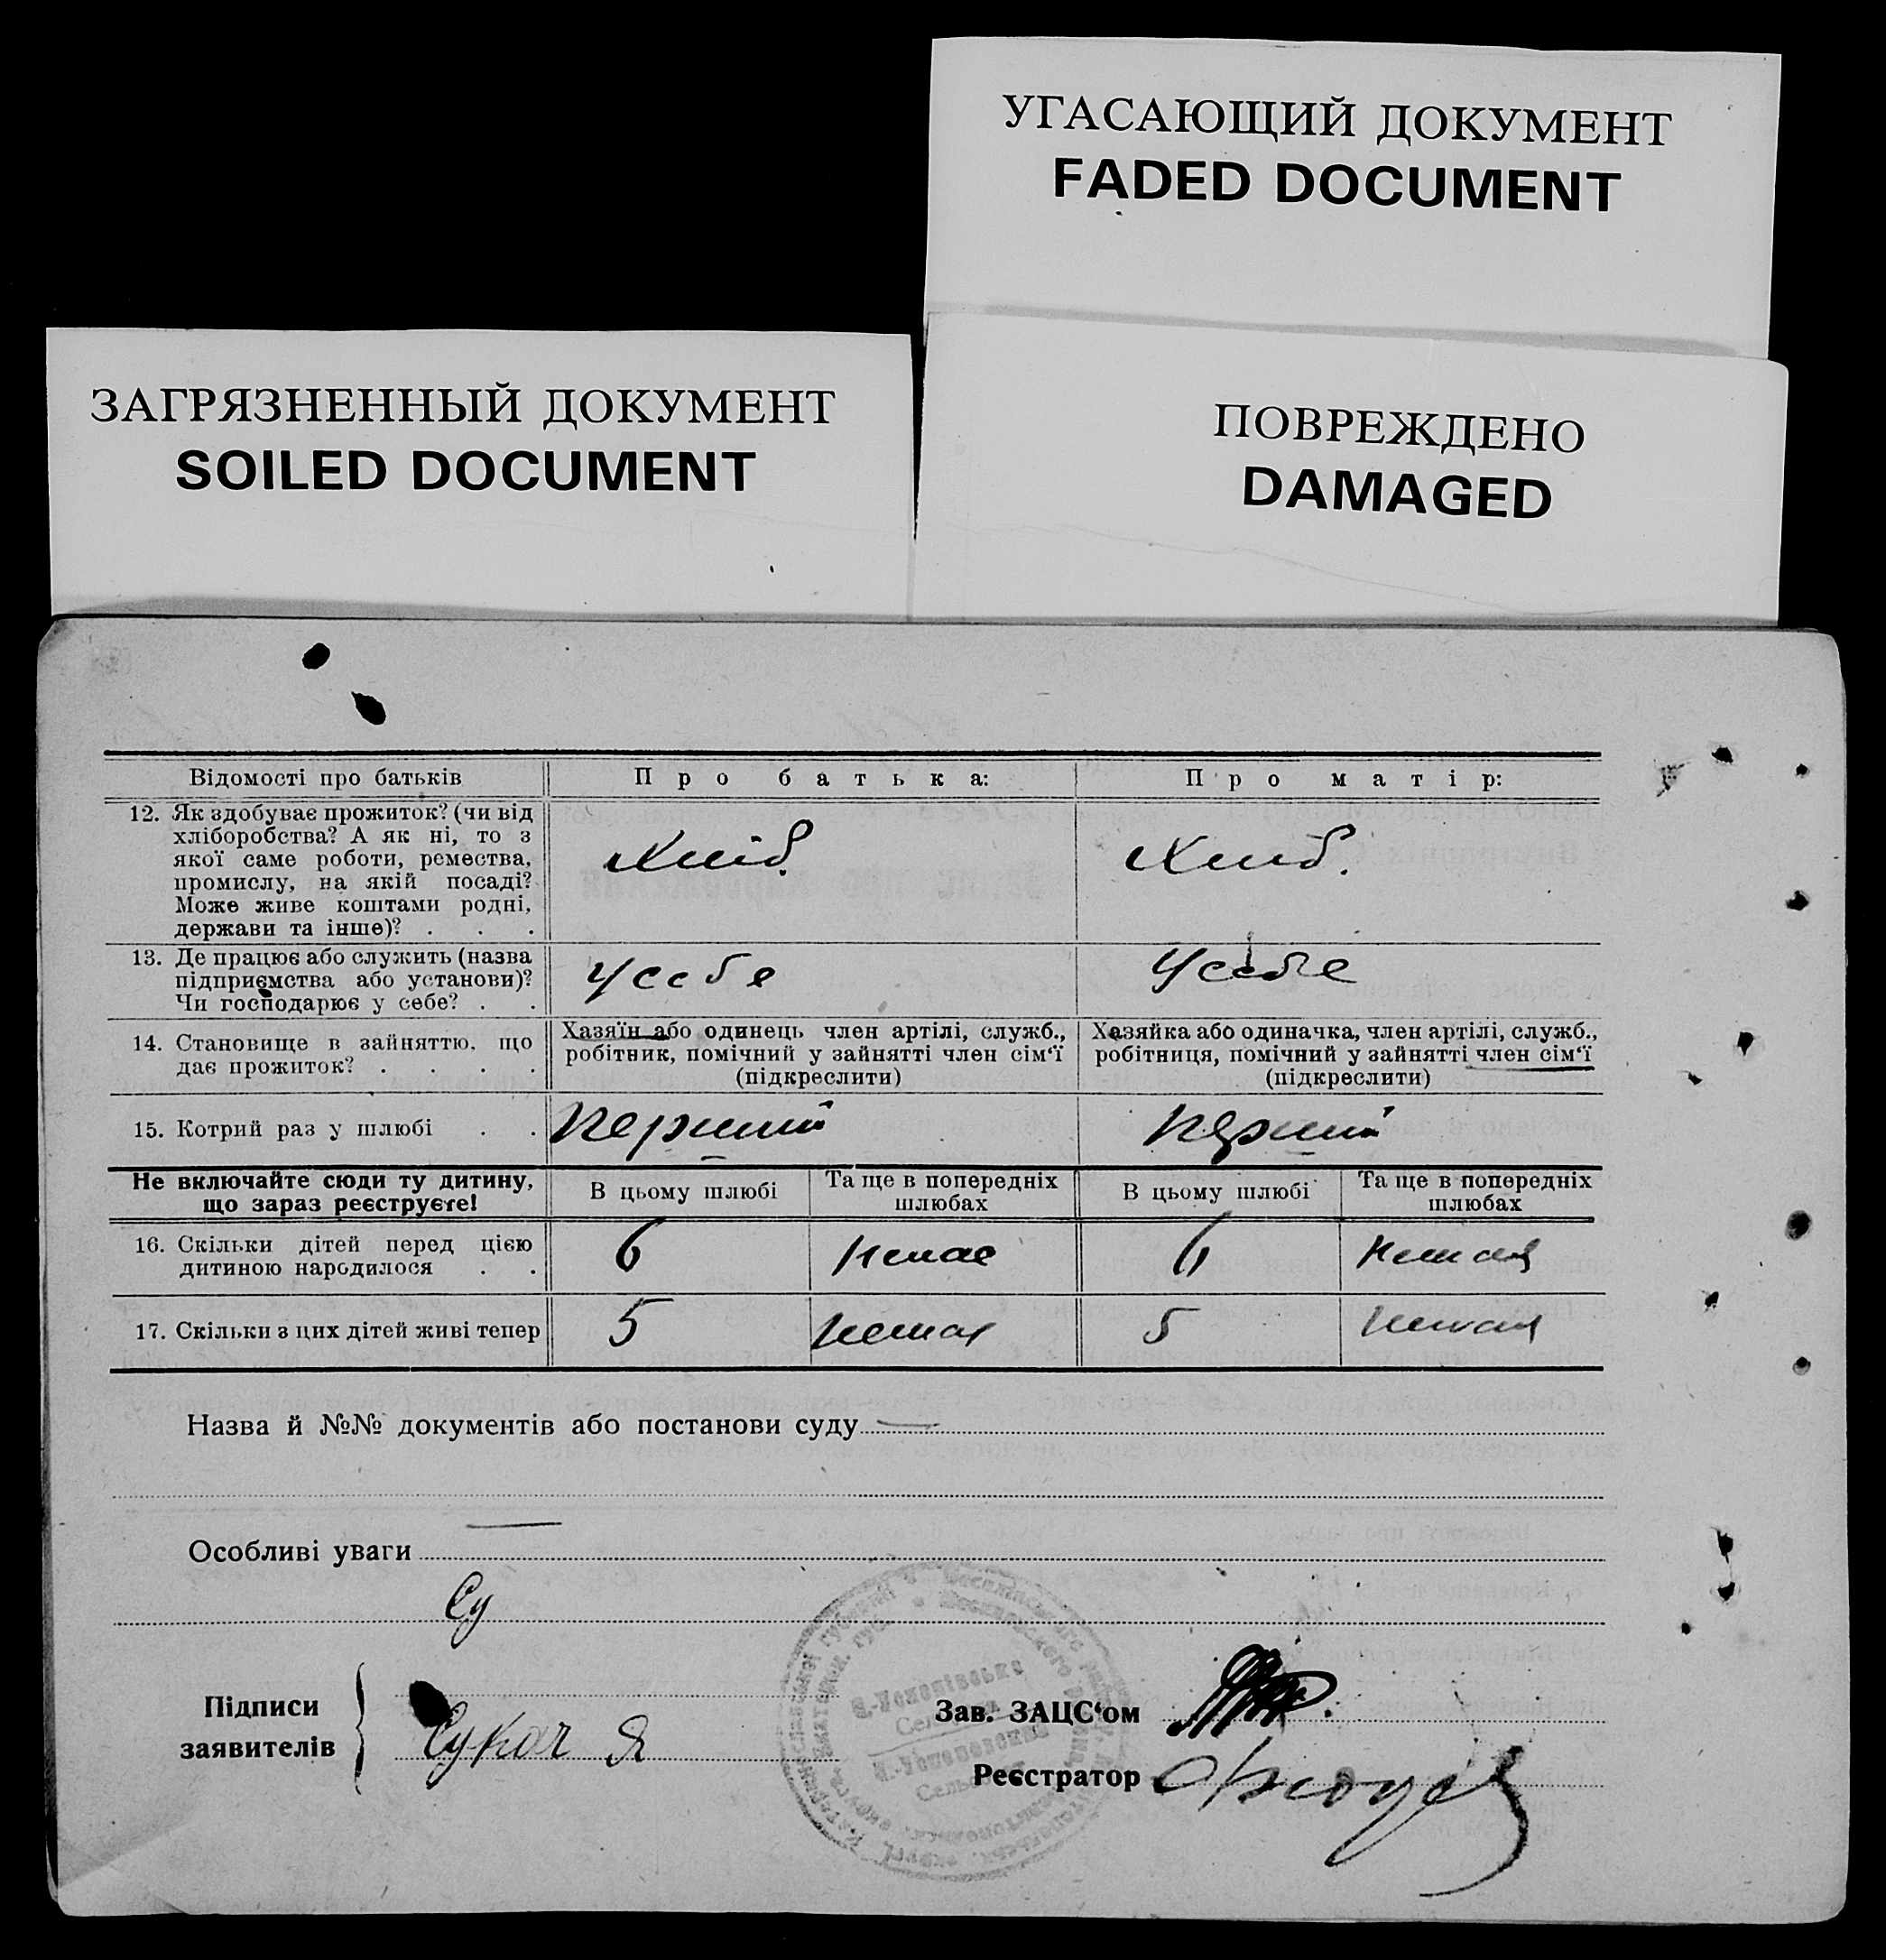 УГАСАЮЩИЙ ДОКУМЕНТ
FADED DOCUMENT
ЗАГРЯЗНЕННЫЙ ДОКУМЕНТ
SOILED DOCUMENT
ПОВРЕЖДЕНО
DAMAGED
Відомості про батьків
Про батька:
Про матір:
12. Як здобуває прожиток? (чи від
хліборобства? А як ні, то з
якої саме роботи, ремества,
промислу, на якій посаді?
Може живе коштами родні,
держави та інше)? . . .
Хліб.
Хліб.
13. Де працює або служить (назва
підприємства або установи)?
Чи господарює у себе? . .
У себе
У себе
14. Становище в зайняттю, що
дає прожиток? . . . .
Хазяїн або одинець член артілі, служб.,
робітник, помічний у зайнятті член сім‘ї
(підкреслити)
Хазяйка або одиначка, член артілі, служб.,
робітниця, помічний у зайнятті член сім‘ї
(підкреслити)
15. Котрий раз у шлюбі . .
перший
перший
Не включайте сюди ту дитину,
що зараз реєструєте!
В цьому шлюбі
Та ще в попередніх
шлюбах
В цьому шлюбі
Та ще в попередніх
шлюбах
16. Скільки дітей перед цією
дитиною народилося . .
6
немає
6
немає
17. Скільки з цих дітей живі тепер
5
немає
5
немає
Назва й №№ документів або постанови суду
Особливі уваги
Су
Підписи
заявителів
Сукач Я
Зав. ЗАЦС‘ом
Реєстратор